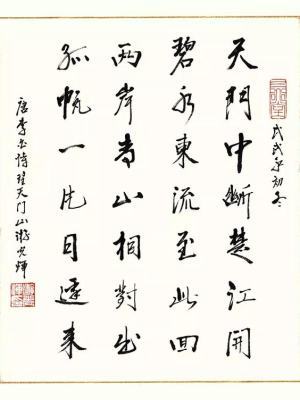 戊戌年初冬
天門中斷楚江開
碧水東流至此回
兩岸青山相對出
孤帆一片日邊来
唐李白诗望天门山